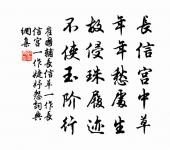 長信宮中草
年年愁處生
故侵珠履迹
不使玉階行
崔國輔長信草一作長
信宮一作婕妤怨詞典
網集